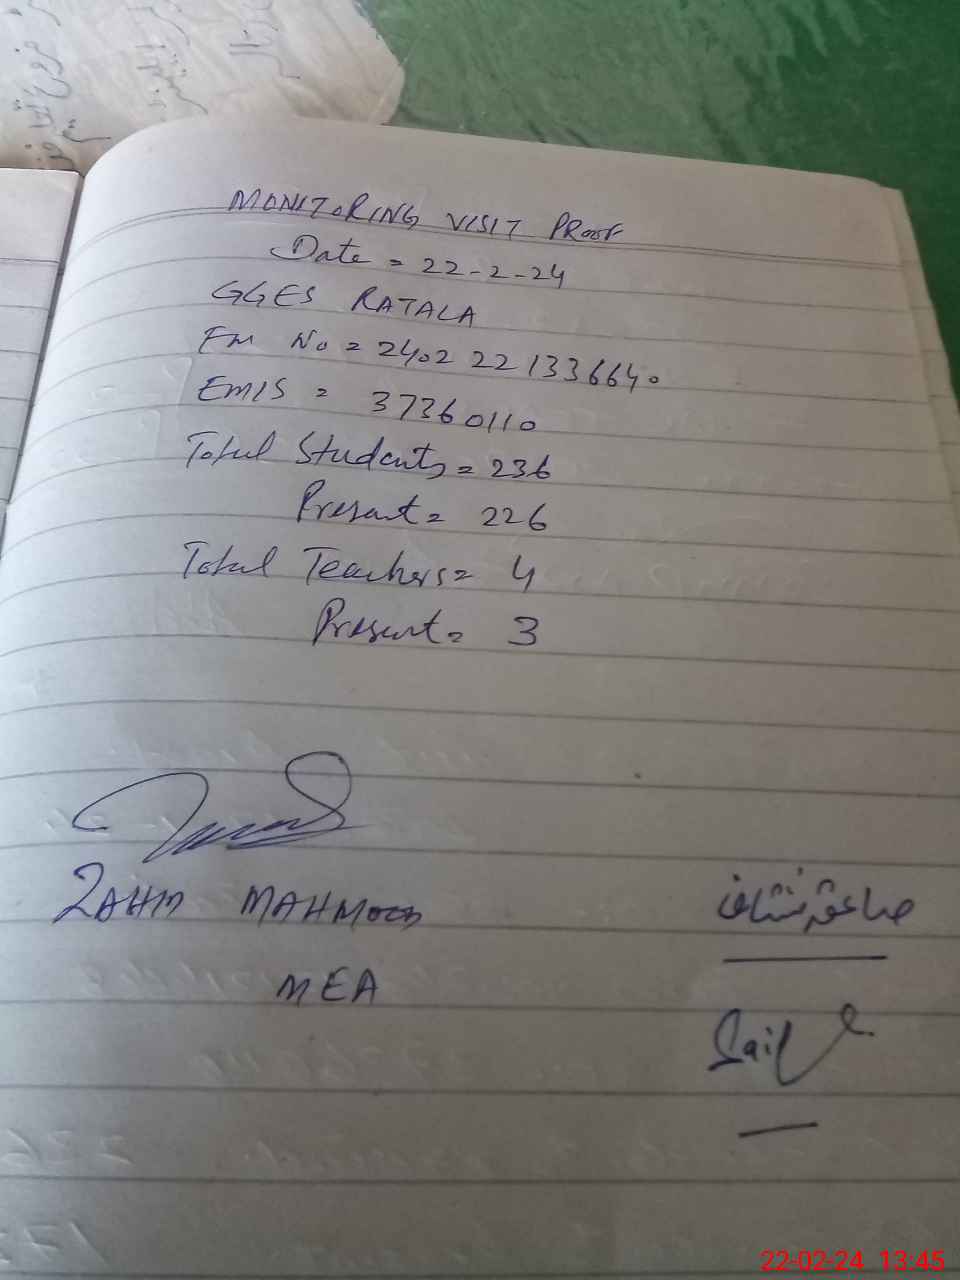 MONITORING VISIT PROOF
Date = 22-2-24
GGES RATALA
Em No = 2402221336640
EMIS = 37360110
Total Students = 236
Present = 226
Total Teachers = 4
Present = 3
ZAHID MAHMOOD
MEA
22-02-24 13:45